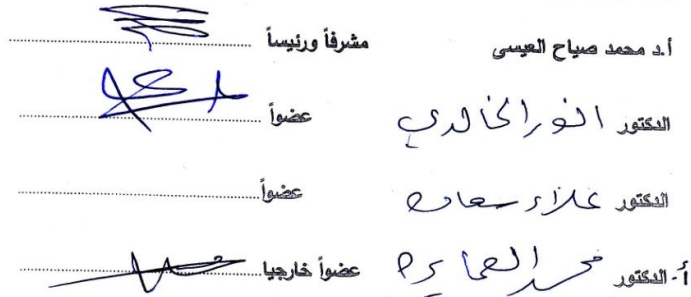 أ.د محمد صياح العيسى مشرفاً ورئيساً
الدكتور انور الخالدي عضواً
الدكتور علاء سعاده عضواً
أ- الدكتور محمد العمايره عضواً خارجيا